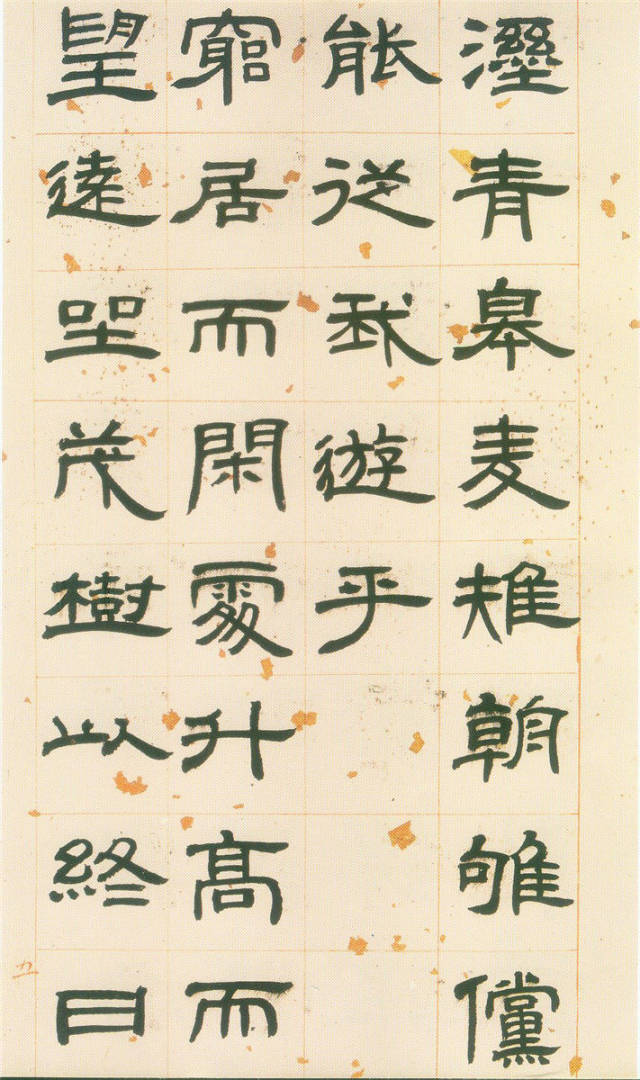 溼青皋麦雉朝雊儻
能従我遊乎
窮居而閑處升高而
望遠坐茂樹以終日